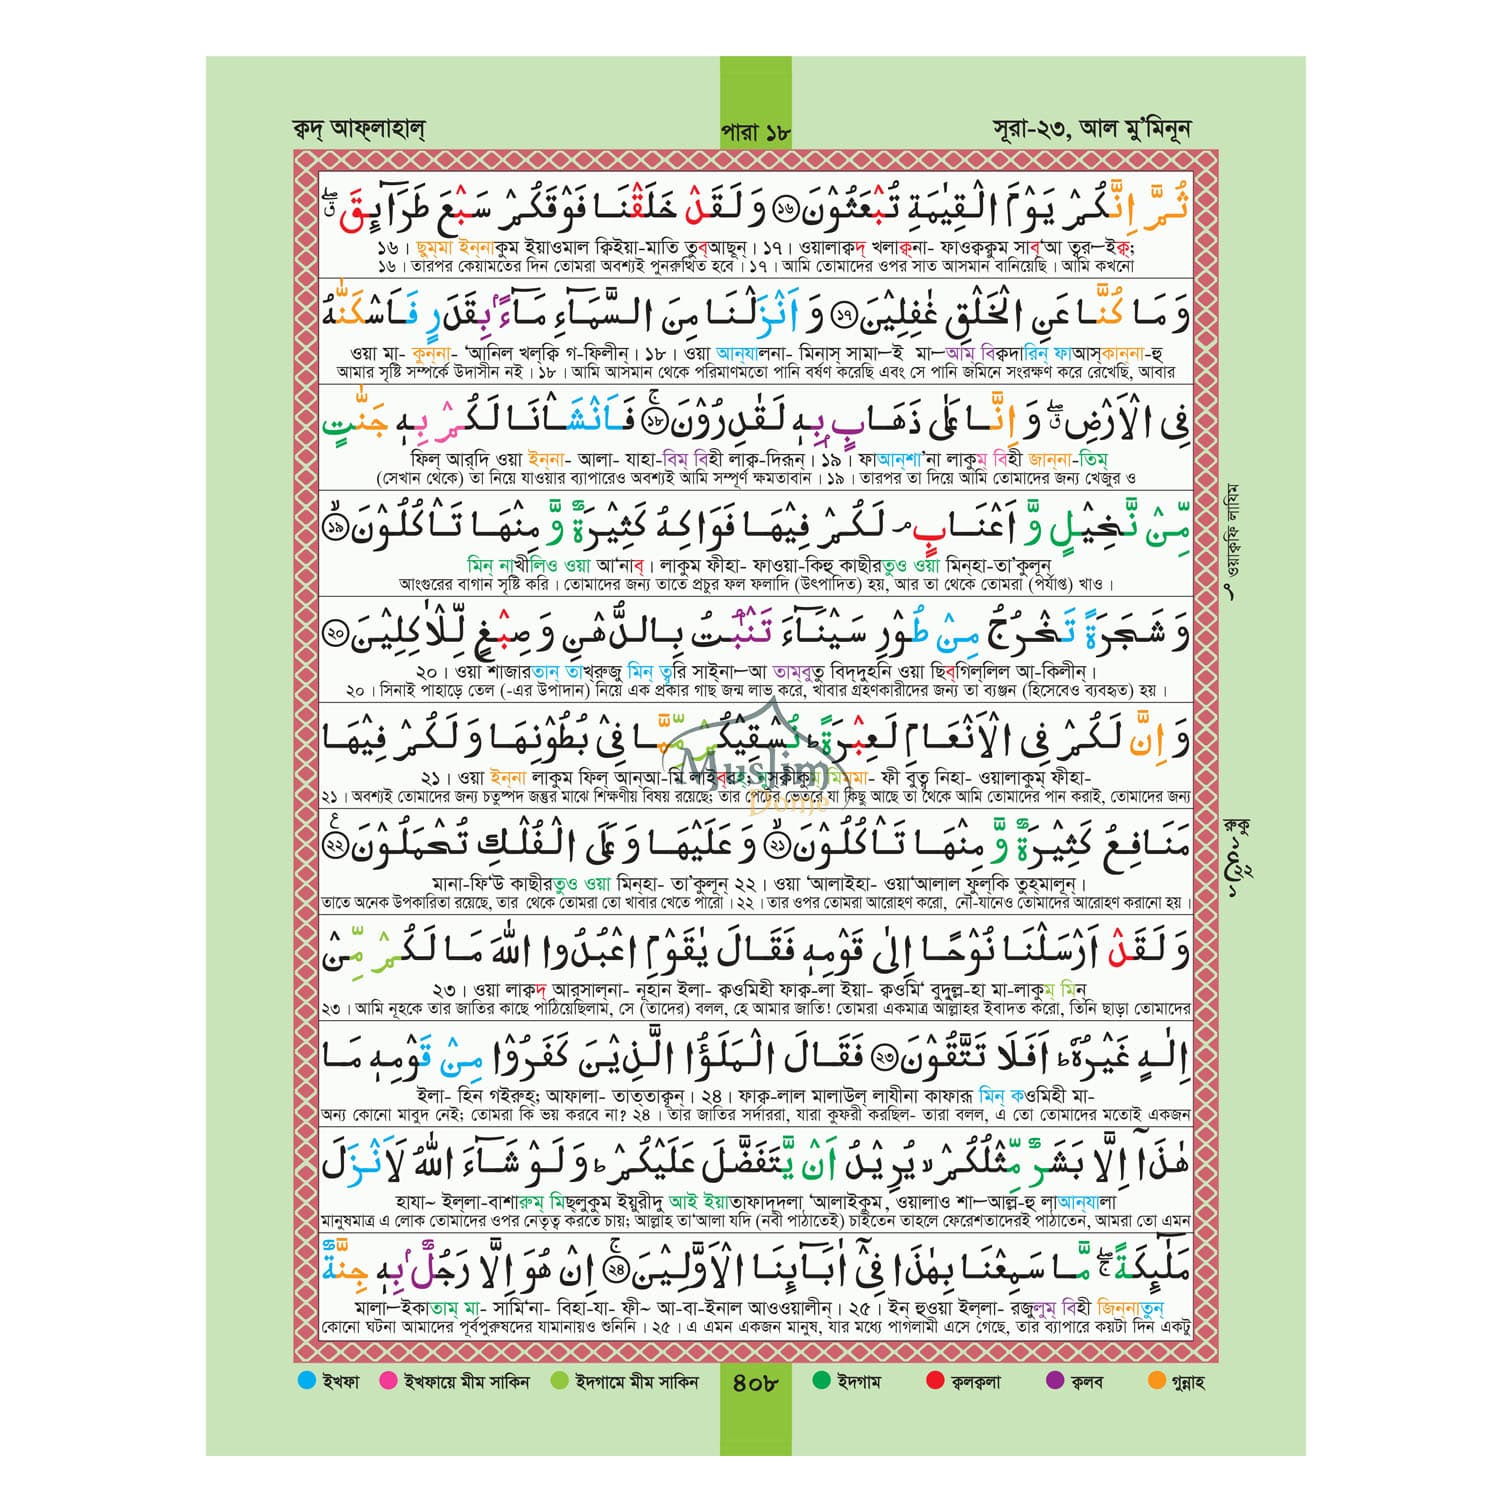 ক্বদ্ আফ্লাহাল্
পারা ১৮
সূরা-২৩, আল মু'মিনূন
ثُمَّ اِنَّكُمْ يَوْمَ الْقِيٰمَةِ تُبْعَثُوْنَ ۝١٦ وَلَقَدْ خَلَقْنَا فَوْقَكُمْ سَبْعَ طَرَآئِقَ ۖق
১৬। ছুম্মা ইন্নাকুম ইয়াওমাল ক্বিইয়া-মাতি তুব্‌আছূন্। ১৭। ওয়ালাক্বদ্ খলাক্বনা- ফাওক্বকুম সাব্‌'আ ত্বর—ইক্ব;
১৬। তারপর কেয়ামতের দিন তোমরা অবশ্যই পুনরুত্থিত হবে। ১৭। আমি তোমাদের ওপর সাত আসমান বানিয়েছি। আমি কখনো
وَمَا كُنَّا عَنِ الْخَلْقِ غٰفِلِيْنَ ۝١٧ وَاَنْزَلْنَا مِنَ السَّمَآءِ مَآءًۢ بِقَدَرٍ فَاَسْكَنّٰهُ
ওয়া মা- কুন্না- 'আনিল খল্‌ক্বি গ-ফিলীন্। ১৮। ওয়া আন্‌যালনা- মিনাস্ সামা—ই মা—আম্ বিক্বদারিন্ ফাআস্‌কান্না-হু
আমার সৃষ্টি সম্পর্কে উদাসীন নই। ১৮। আমি আসমান থেকে পরিমাণমতো পানি বর্ষণ করেছি এবং সে পানি জমিনে সংরক্ষণ করে রেখেছি, আবার
فِي الْاَرْضِ ۖق وَاِنَّا عَلٰى ذَهَابٍۭ بِهٖ لَقٰدِرُوْنَ ۝١٨ۚ فَاَنْشَاْنَا لَكُمْ بِهٖ جَنّٰتٍ
ফিল্ আর্‌দি ওয়া ইন্না- আলা- যাহা-বিম্ বিহী লাক্ব-দিরূন্। ১৯। ফাআন্‌শা'না লাকুম্ বিহী জান্না-তিম্
(সেখান থেকে) তা নিয়ে যাওয়ার ব্যাপারেও অবশ্যই আমি সম্পূর্ণ ক্ষমতাবান। ১৯। তারপর তা দিয়ে আমি তোমাদের জন্য খেজুর ও
مِّنْ نَّخِيْلٍ وَّاَعْنَابٍ ۘ لَكُمْ فِيْهَا فَوَاكِهُ كَثِيْرَةٌ وَّمِنْهَا تَاْكُلُوْنَ ۝١٩ۙ
মিন্ নাখীলিও ওয়া আ'নাব্। লাকুম ফীহা- ফাওয়া-কিহু কাছীরতুও ওয়া মিন্‌হা-তা'কুলূন্
আংগুরের বাগান সৃষ্টি করি। তোমাদের জন্য তাতে প্রচুর ফল ফলাদি (উৎপাদিত) হয়, আর তা থেকে তোমরা (পর্যাপ্ত) খাও।
ওয়াক্বফি লাযিম
وَشَجَرَةً تَخْرُجُ مِنْ طُوْرِ سَيْنَآءَ تَنْۢبُتُ بِالدُّهْنِ وَصِبْغٍ لِّلْاٰكِلِيْنَ ۝٢٠
২০। ওয়া শাজারতান্ তাখ্‌রুজু মিন্ ত্বূরি সাইনা—আ তাম্‌বুতু বিদ্‌দুহনি ওয়া ছিব্‌গিল্‌লিল আ-কিলীন্।
২০। সিনাই পাহাড়ে তেল (-এর উপাদান) নিয়ে এক প্রকার গাছ জন্ম লাভ করে, খাবার গ্রহণকারীদের জন্য তা ব্যঞ্জন (হিসেবেও ব্যবহৃত) হয়।
وَاِنَّ لَكُمْ فِي الْاَنْعَامِ لَعِبْرَةً ؕ نُسْقِيْكُمْ مِّمَّا فِيْ بُطُوْنِهَا وَلَكُمْ فِيْهَا
২১। ওয়া ইন্না লাকুম ফিল্ আন্‌আ-মি লাইব্‌রহ্; নুসক্বীকুম্ মিম্‌মা- ফী বুতূ নিহা- ওয়ালাকুম্ ফীহা-
২১। অবশ্যই তোমাদের জন্য চতুষ্পদ জন্তুর মাঝে শিক্ষণীয় বিষয় রয়েছে; তার পেটের ভেতরে যা কিছু আছে তা থেকে আমি তোমাদের পান করাই, তোমাদের জন্য
Muslim
Donje
مَنَافِعُ كَثِيْرَةٌ وَّمِنْهَا تَاْكُلُوْنَ ۝٢١ۙ وَعَلَيْهَا وَعَلَى الْفُلْكِ تُحْمَلُوْنَ ۝٢٢ع
রুকু
মানা-ফি'উ কাছীরতুও ওয়া মিন্‌হা- তা'কুলূন্ ২২। ওয়া 'আলাইহা- ওয়া'আলাল ফুল্‌কি তুহ্‌মালূন্।
তাতে অনেক উপকারিতা রয়েছে, তার থেকে তোমরা তো খাবার খেতে পারো। ২২। তার ওপর তোমরা আরোহণ করো, নৌ-যানেও তোমাদের আরোহণ করানো হয়।
وَلَقَدْ اَرْسَلْنَا نُوْحًا اِلٰى قَوْمِهٖ فَقَالَ يٰقَوْمِ اعْبُدُوا اللّٰهَ مَا لَكُمْ مِّنْ
২৩। ওয়া লাক্বদ্ আর্‌সাল্‌না- নূহান ইলা- ক্বওমিহী ফাক্ব-লা ইয়া- ক্বওমি' বুদুল্ল-হা মা-লাকুম্ মিন্
২৩। আমি নূহকে তার জাতির কাছে পাঠিয়েছিলাম, সে (তাদের) বলল, হে আমার জাতি! তোমরা একমাত্র আল্লাহর ইবাদত করো, তিনি ছাড়া তোমাদের
اِلٰهٍ غَيْرُهٗ ؕ اَفَلَا تَتَّقُوْنَ ۝٢٣ فَقَالَ الْمَلَؤُا الَّذِيْنَ كَفَرُوْا مِنْ قَوْمِهٖ مَا
ইলা- হিন গইরুহ; আফালা- তাত্তাক্বূন্। ২৪। ফাক্ব-লাল মালাউল্ লাযীনা কাফারূ মিন্ কওমিহী মা-
অন্য কোনো মাবুদ নেই; তোমরা কি ভয় করবে না? ২৪। তার জাতির সর্দাররা, যারা কুফরী করছিল- তারা বলল, এ তো তোমাদের মতোই একজন
هٰذَآ اِلَّا بَشَرٌ مِّثْلُكُمْ ۙ يُرِيْدُ اَنْ يَّتَفَضَّلَ عَلَيْكُمْ ؕ وَلَوْ شَآءَ اللّٰهُ لَاَنْزَلَ
হাযা~ ইল্‌লা-বাশারুম্ মিছ্‌লুকুম ইয়ুরীদু আই ইয়াতাফাদ্‌দলা 'আলাইকুম, ওয়ালাও শা—আল্ল-হু লাআন্‌যালা
মানুষমাত্র এ লোক তোমাদের ওপর নেতৃত্ব করতে চায়; আল্লাহ তা'আলা যদি (নবী পাঠাতেই) চাইতেন তাহলে ফেরেশতাদেরই পাঠাতেন, আমরা তো এমন
مَلٰٓئِكَةً ۖۚ مَّا سَمِعْنَا بِهٰذَا فِيْٓ اٰبَآئِنَا الْاَوَّلِيْنَ ۝٢٤ۚ اِنْ هُوَ اِلَّا رَجُلٌۢ بِهٖ جِنَّةٌ
মালা—ইকাতাম্ মা- সামি'না- বিহা-যা- ফী~ আ-বা-ইনাল আওওয়ালীন্। ২৫। ইন্ হুওয়া ইল্‌লা- রজুলুম্ বিহী জিন্নাতুন্
কোনো ঘটনা আমাদের পূর্বপুরুষদের যামানায়ও শুনিনি। ২৫। এ এমন একজন মানুষ, যার মধ্যে পাগলামী এসে গেছে, তার ব্যাপারে কয়টা দিন একটু
ইখফা ইখফায়ে মীম সাকিন ইদগামে মীম সাকিন ৪০৮ ইদগাম ক্বলক্বলা ক্বলব গুন্নাহ